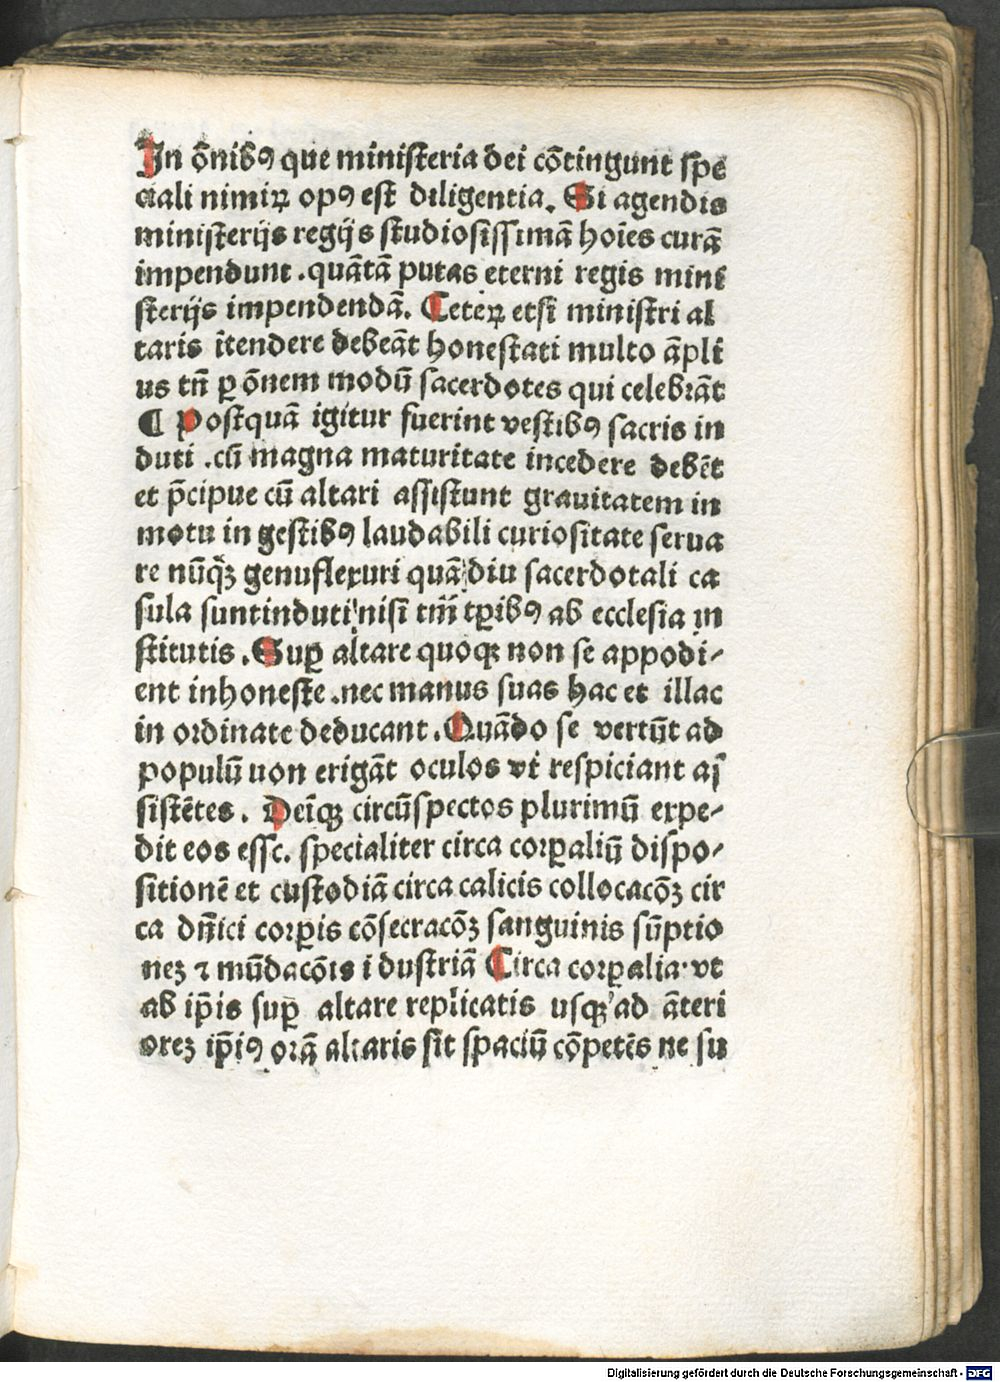 In õnibꝰ que miniſteria dei cõtingunt ſpe
ciali nimiꝝ opꝰ eſt diligentia. Si agendis
miniſterijs regijs ſtudioſiſſimã hoĩes curã
impendunt .quãtã putas eterni regis mini
ſterijs impendendã. Ceteꝝ etſi miniſtri al
taris ĩtendere debeãt honeſtati multo ãpli
us tñ ꝑ õnem modũ ſacerdotes qui celebrãt
¶ Poſtquã igitur fuerint veſtibꝰ ſacris in
duti .cũ magna maturitate incedere debẽt
et p̃cipue cũ altari aſſiſtunt grauitatem in
motu in geſtibꝰ laudabili curioſitate ſerua
re nũq̃ꝫ genuflexuri quã diu ſacerdotali ca
ſula ſuntinduti niſi tm̃ tꝑibꝰ ab eccleſia in
ſtitutis .Suꝑ altare quoqꝫ non ſe appodi⸗
ent inhoneſte .nec manus ſuas hac et illac
in ordinate deducant .Quãdo ſe vertũt ad
populũ uon erigãt oculos vt reſpiciant aſ
ſiſtẽtes. Deĩqꝫ circũſpectos plurimũ expe⸗
dit eos eſſc. ſpecialiter circa corꝑaliũ diſpo⸗
ſitionẽ et cuſtodiã circa calicis collocacõꝫ cir
ca dñici corꝑis cõſecracõꝫ ſanguinis ſũptio
neꝫ ⁊ mũdacõis i duſtriã Circa corꝑalia· vt
ab ip̃is ſuꝑ altare replicatis uſqꝫ ad ãteri
oreꝫ ip̃iꝰ orã altaris ſit ſpaciũ cõpetẽs ne ſu
Digitalisierung gefördert durch die Deutsche Forschungsgemeinschaft - DFG